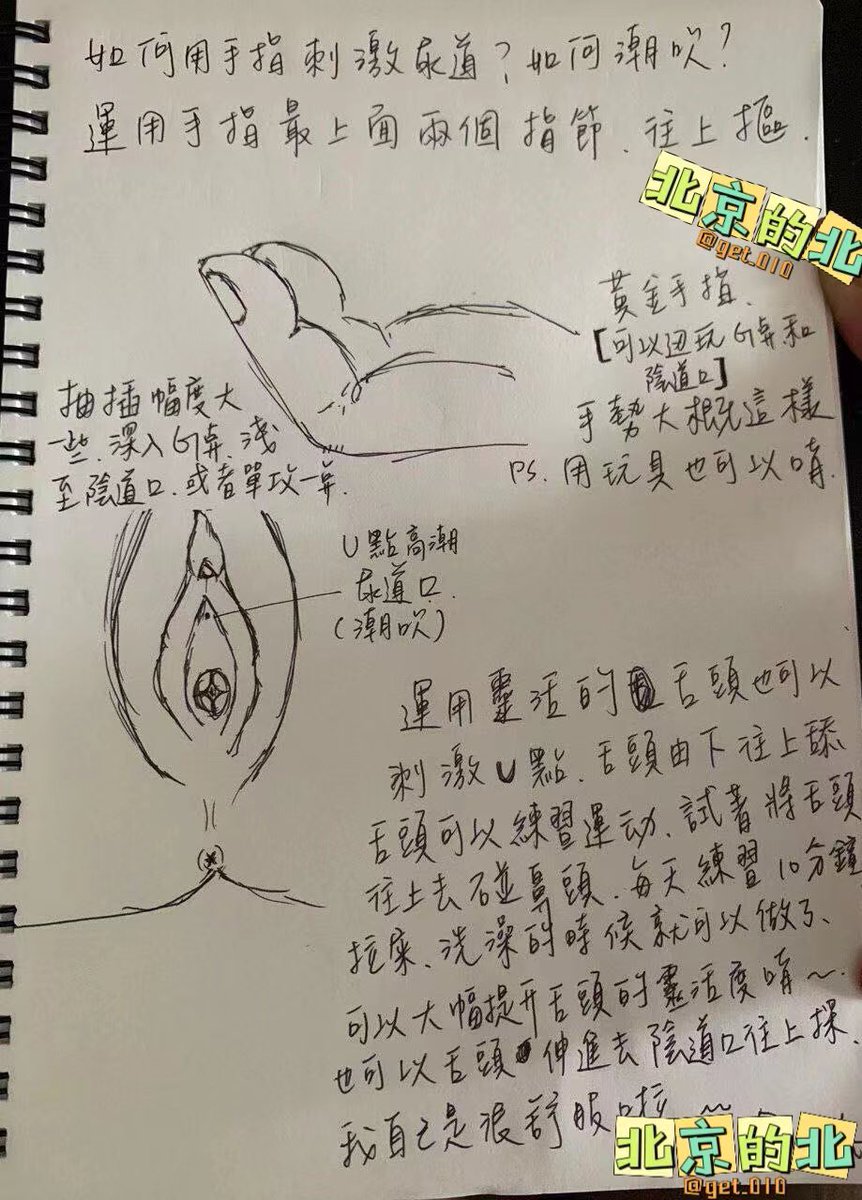 如何用手指刺激尿道？如何潮吹？
運用手指最上面兩個指節、往上摳.
北京的北
@get.010
黃金手指、
[可以边玩G點和
陰道口]
手勢大概這樣
PS. 用玩具也可以唷.
抽插幅度大
一些、深入G點、淺
至陰道口、或者單攻一點.
U點高潮
尿道口.
(潮吹)
運用靈活的舌頭也可以
刺激U點、舌頭由下往上舔
舌頭可以練習運动、試著將舌頭
往上去碰鼻頭、每天練習10分鐘
拉屎、洗澡的時候就可以做了、
可以大幅提升舌頭的靈活度唷～.
也可以舌頭伸進去陰道口往上探、
我自己是很舒服啦 ～
北京的北
@get.010